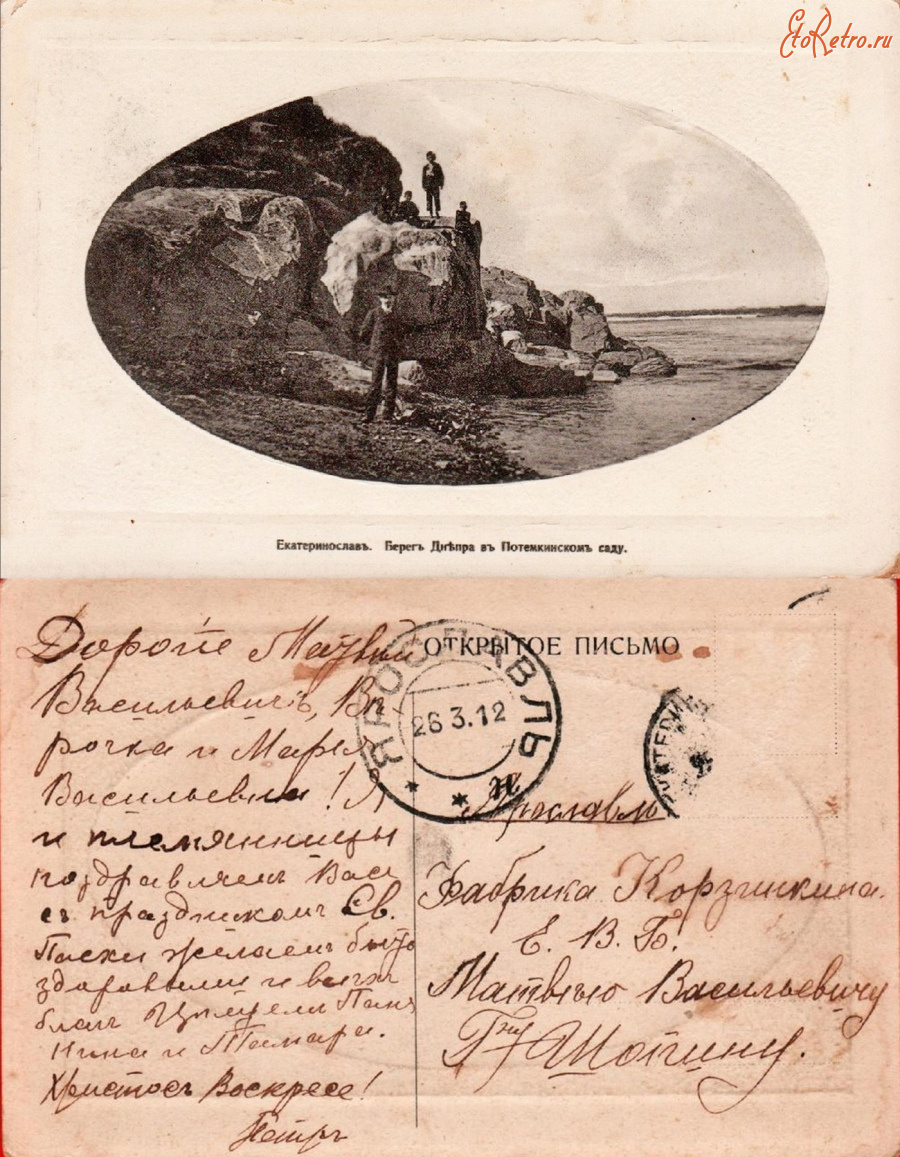 EtoRetro.ru
Екатеринославъ. Берегъ Днѣпра въ Потемкинскомъ саду.
ОТКРЫТОЕ ПИСЬМО
ЯРОСЛАВЛЬ
26.3.12
Дорогіе Матвей
Васильевичъ, Вѣ-
рочка и Марья
Васильевна! Я
и племянницы
поздравляемъ Васъ
съ праздникомъ Св.
Пасхи желаемъ быть
здоровыми и всѣхъ
благъ
Нина и Тамара.
Христосъ Воскресе!
Петръ
Ярославль
Фабрика Корзинкина.
Е. В. Б.
Матвѣю Васильевичу
Гну Шопину.